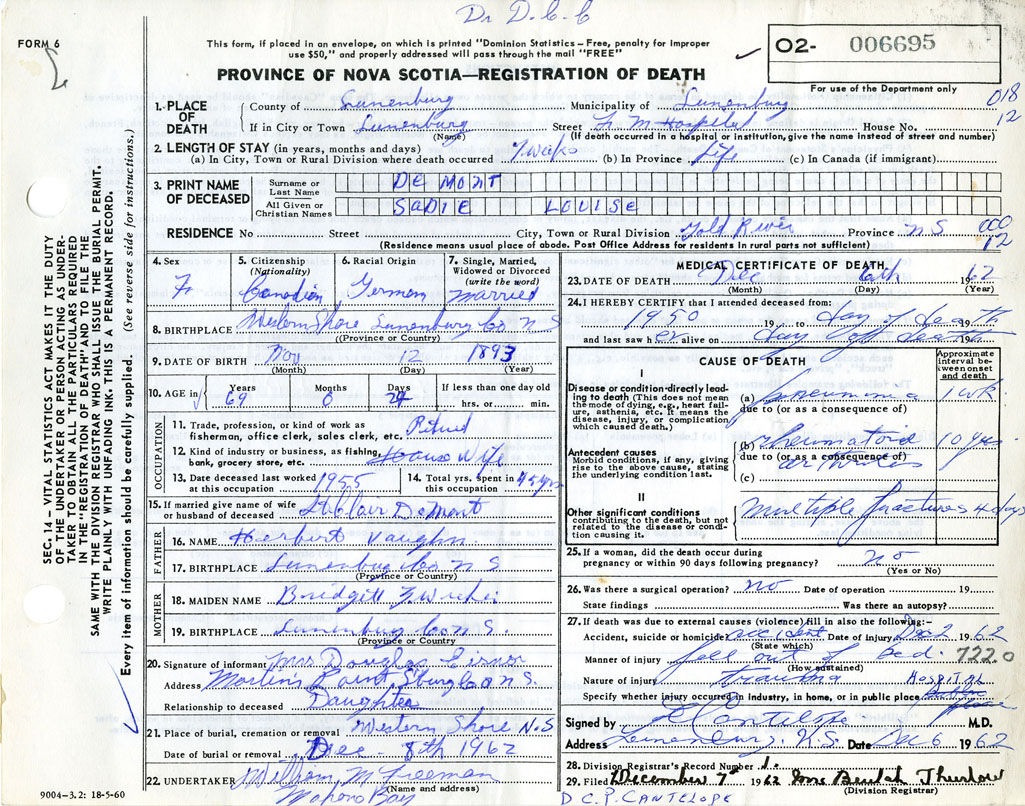 Dr D. C. C
FORM 6
This form, if placed in an envelope, on which is printed "Dominion Statistics—Free, penalty for improper
use $50," and properly addressed will pass through the mail "FREE"
02- 006695
PROVINCE OF NOVA SCOTIA—REGISTRATION OF DEATH
For use of the Department only
018
12
1. PLACE OF DEATH County of Lunenburg Municipality of Lunenburg
If in City or Town Lunenburg (Name) Street F. M Hospital House No.
(If death occurred in a hospital or institution, give the name instead of street and number)
2. LENGTH OF STAY (in years, months and days)
(a) In City, Town or Rural Division where death occurred 7 weeks (b) In Province Life (c) In Canada (if immigrant)
3. PRINT NAME OF DECEASED
Surname or Last Name DE MONT
All Given or Christian Names SADIE LOUISE
RESIDENCE No Street City, Town or Rural Division Gold River Province N S
000
12
(Residence means usual place of abode. Post Office Address for residents in rural parts not sufficient)
4. Sex F
5. Citizenship (Nationality) Canadian
6. Racial Origin German
7. Single, Married, Widowed or Divorced (write the word) Married
8. BIRTHPLACE Western Shore Lunenburg Co N S
(Province or Country)
9. DATE OF BIRTH Nov 12 1893
(Month) (Day) (Year)
10. AGE in Years 69 Months 0 Days 24 If less than one day old hrs. or min.
OCCUPATION
11. Trade, profession, or kind of work as fisherman, office clerk, sales clerk, etc. Retired
12. Kind of industry or business, as fishing, bank, grocery store, etc. House Wife
13. Date deceased last worked at this occupation 1955
14. Total yrs. spent in this occupation 45 yrs
15. If married give name of wife or husband of deceased St Clair DeMont
FATHER
16. NAME Herbert Vaughn
17. BIRTHPLACE Lunenburg Co N S
(Province or Country)
MOTHER
18. MAIDEN NAME Bridgitt
19. BIRTHPLACE Lunenburg Co N S.
(Province or Country)
20. Signature of informant Mrs Douglas Eisnor
Address Martins Point Lburg Co N S.
Relationship to deceased Daughter
21. Place of burial, cremation or removal Western Shore N.S
Date of burial or removal Dec - 8th 1962
22. UNDERTAKER William M Freeman
(Name and address)
Mahone Bay
9004-3.2: 18-5-60
MEDICAL CERTIFICATE OF DEATH
23. DATE OF DEATH Dec 6th 1962
(Month) (Day) (Year)
24. I HEREBY CERTIFY that I attended deceased from:
1950 19 to day of death 19
and last saw her alive on day of death 19
CAUSE OF DEATH
Approximate interval between onset and death
I
Disease or condition directly leading to death (This does not mean the mode of dying, e.g., heart failure, asthenia, etc. It means the disease, injury, or complication which caused death.)
(a) Pneumonia 1 wk
due to (or as a consequence of)
Antecedent causes
Morbid conditions, if any, giving rise to the above cause, stating the underlying condition last.
(b) rheumatoid 10 yrs
due to (or as a consequence of)
arthritis
(c)
II
Other significant conditions contributing to the death, but not related to the disease or condition causing it.
Multiple fractures 4 days
25. If a woman, did the death occur during pregnancy or within 90 days following pregnancy? no
(Yes or No)
26. Was there a surgical operation? no Date of operation 19
State findings Was there an autopsy?
27. If death was due to external causes (violence) fill in also the following:—
Accident, suicide or homicide accident Date of injury Dec 2 1962
(State which)
Manner of injury fell out of bed. 722.0
(How sustained)
Nature of injury trauma HOSPITAL
Specify whether injury occurred in industry, in home, or in public place
Signed by D C Cantelope M.D.
Address Lunenburg, N.S. Date Dec 6 1962
28. Division Registrar's Record Number 1.
29. Filed December 7th 1962 Mrs Beulah Thurlow
(Division Registrar)
D C. P. CANTELOPE
SEC. 14 – VITAL STATISTICS ACT MAKES IT THE DUTY
OF THE UNDERTAKER OR PERSON ACTING AS UNDER-
TAKER TO OBTAIN ALL THE PARTICULARS REQUIRED
IN THE "REGISTRATION OF DEATH" AND TO FILE THE
SAME WITH THE DIVISION REGISTRAR WHO SHALL ISSUE THE BURIAL PERMIT.
WRITE PLAINLY WITH UNFADING INK. THIS IS A PERMANENT RECORD.
Every item of information should be carefully supplied. (See reverse side for instructions.)